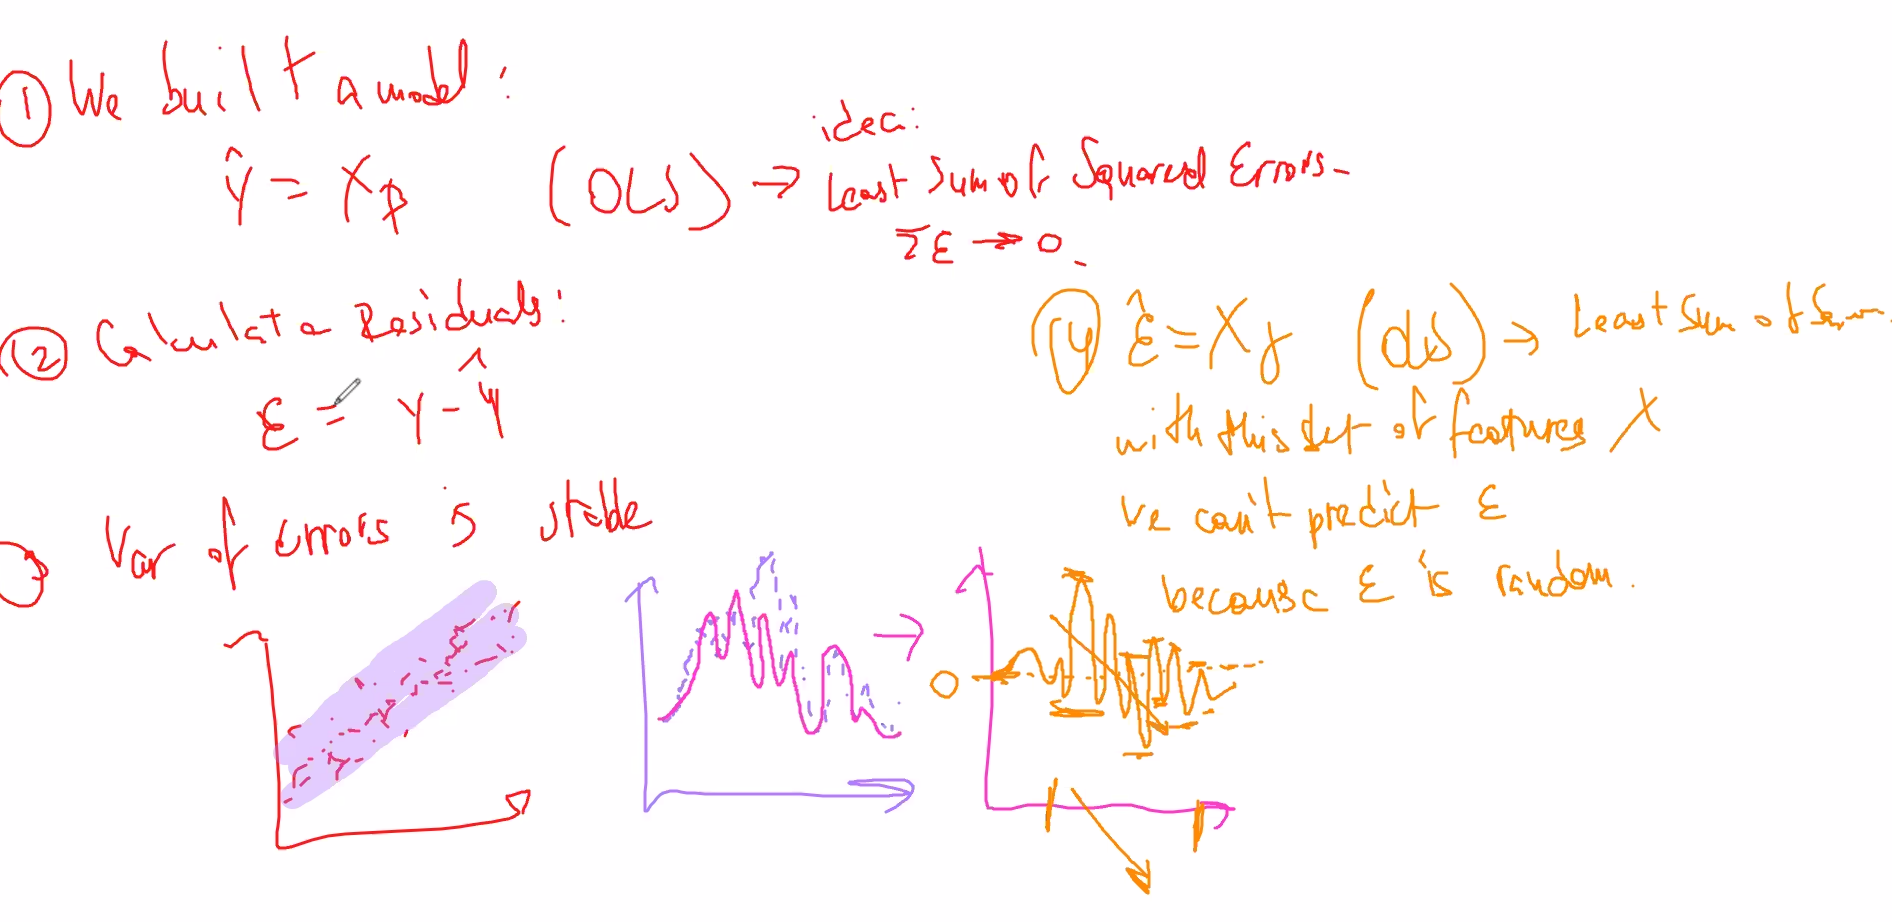 ① We built a model:
Ŷ = Xβ (OLS) → idea:
Least Sum of Squared Errors.
Σε → 0.
② Calculate Residuals:
ε = Y - Ŷ
③ Var of errors is stable
④ ε̂ = Xγ (OLS) → Least Sum of
with this set of features X
we can't predict ε
because ε is random.
0